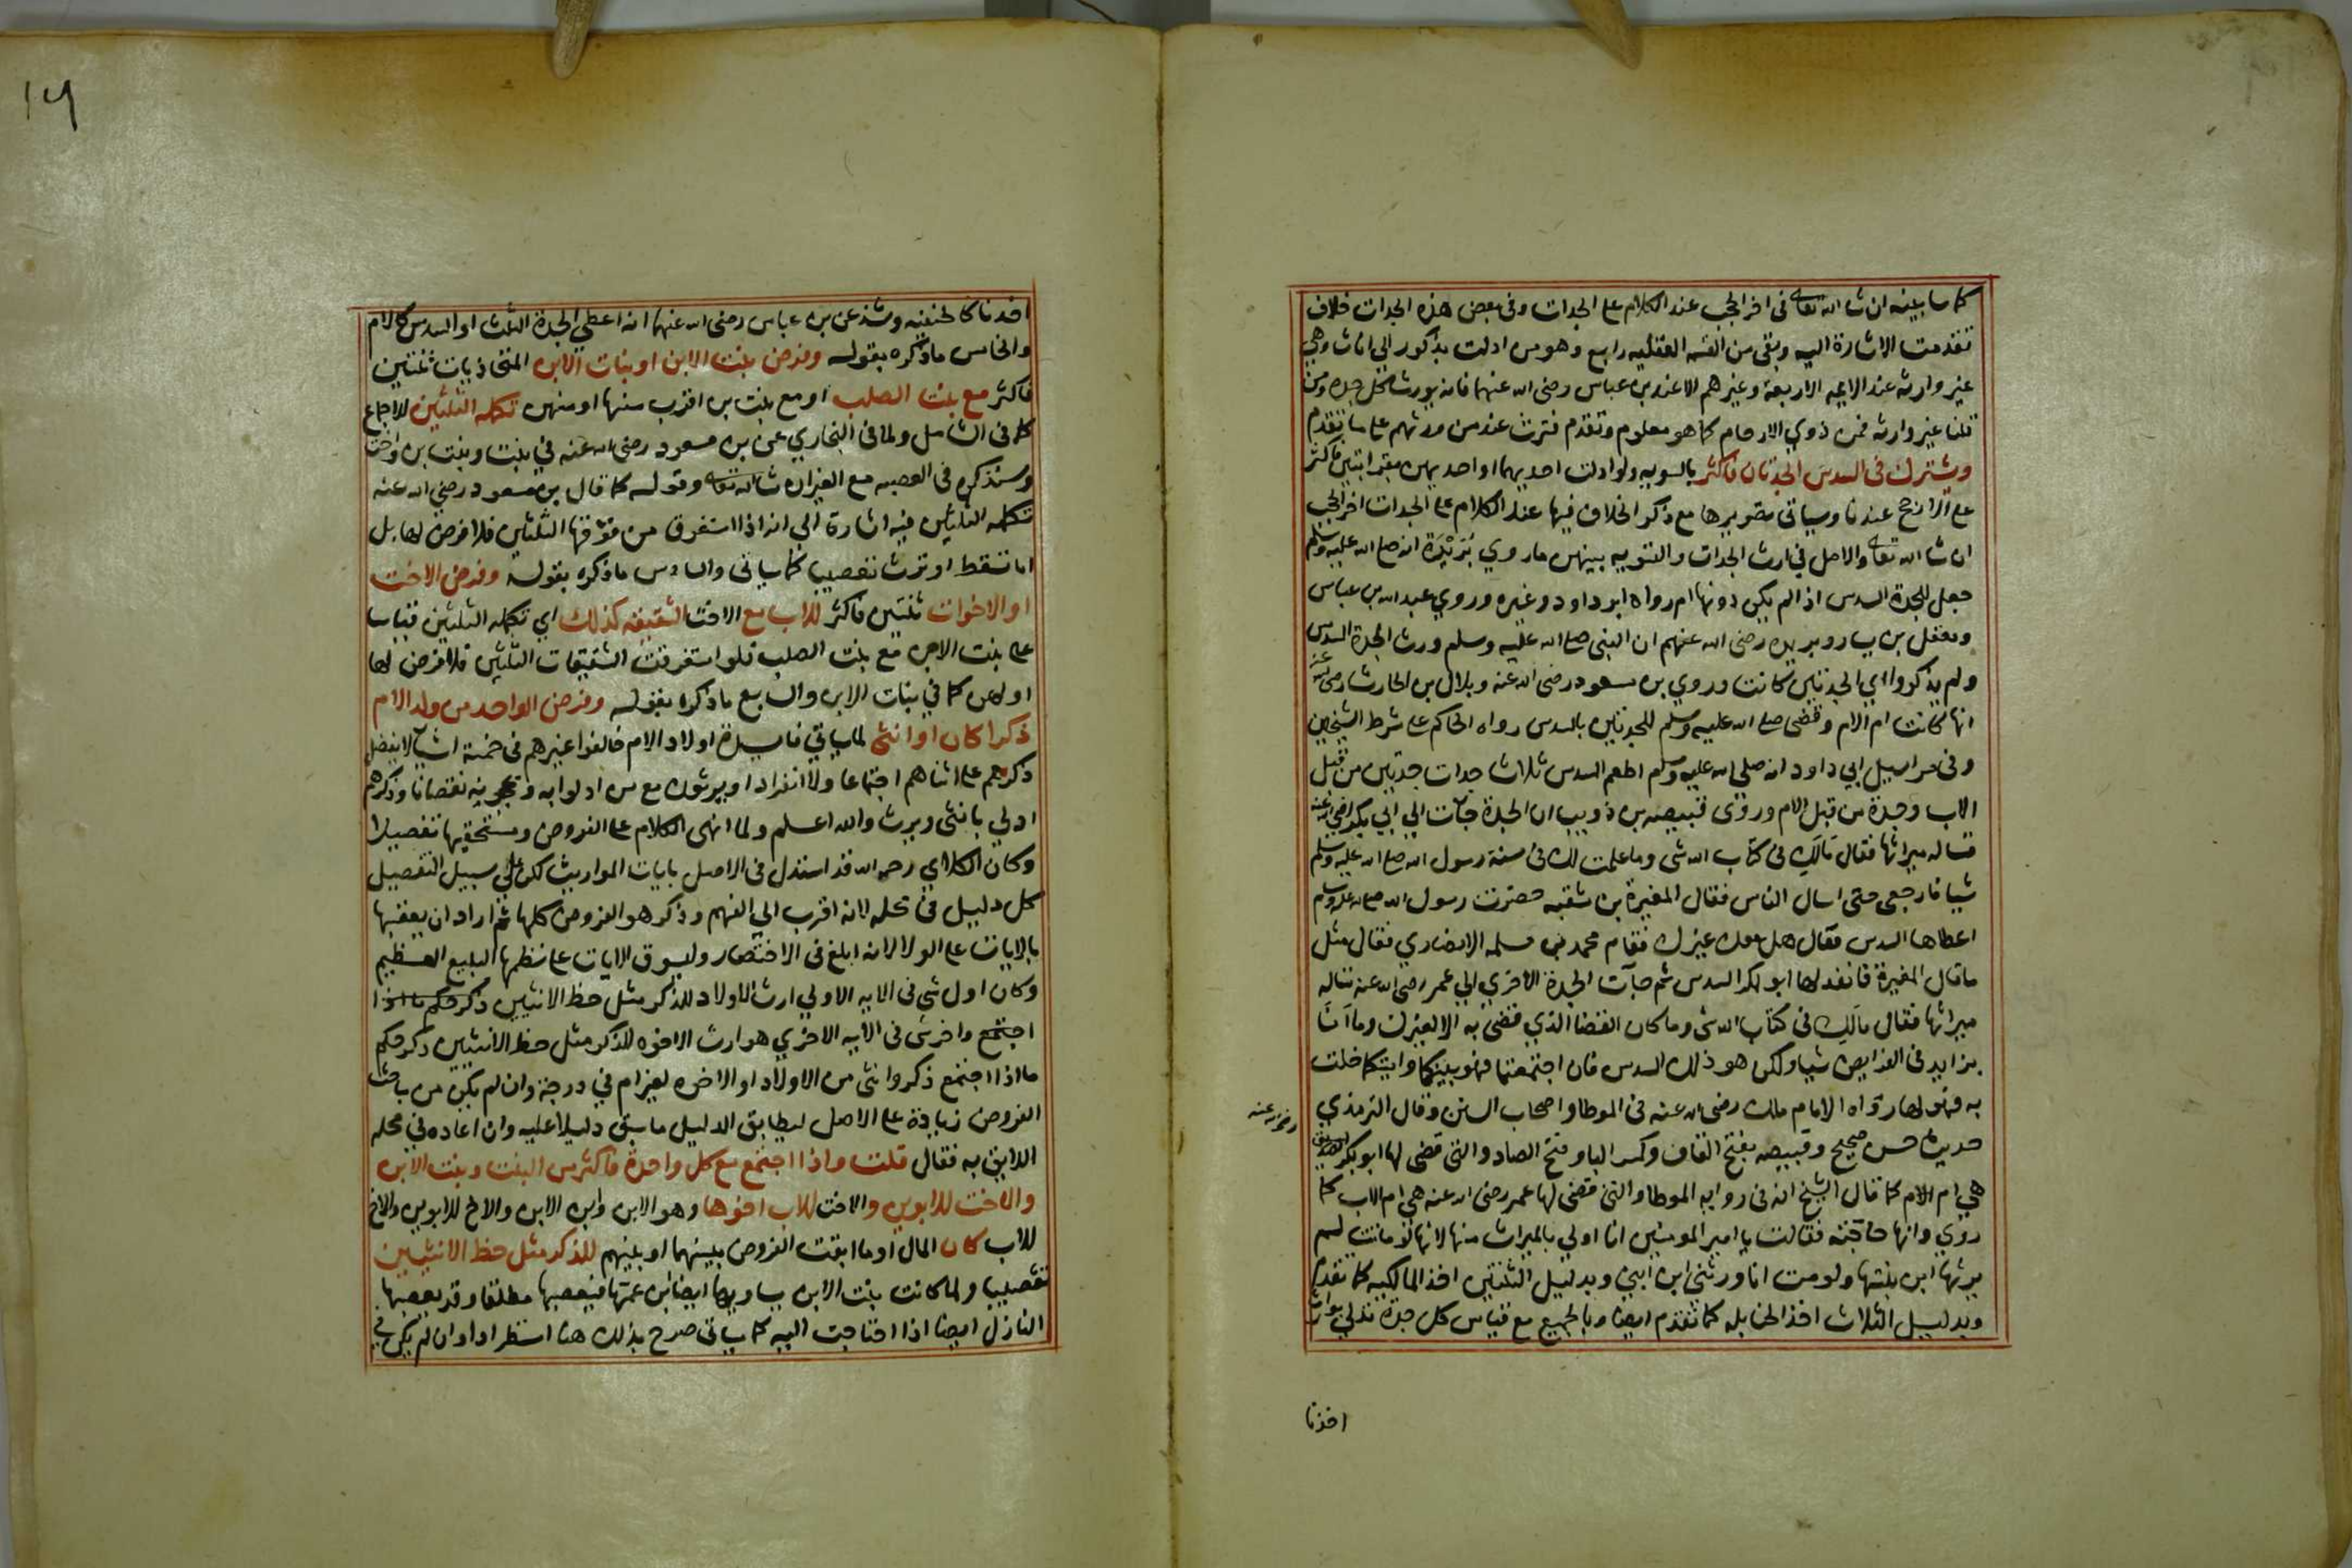 كما سابينه ان شا الله تعالى فى اخر الحجب عند الكلام على الجدات وفى بعض هذه الجدات خلاف
تقدمت الاشارة اليه وبقى من القسمة العقليه رابع وهو من ادلت بذكور الى اناث وهي
غير وارثه عند الايمه الاربعة وغيرهم الا عند بن عباس رضى الله عنهما فانه يورث كل جدة ومن
قلنا غير وارثه فمن ذوي الارحام كما هو معلوم وتقدم فترث عند من ورثهم على ما تقدم
ويشترك فى السدس الجدتان فاكثر بالسويه ولو ادلت احديهما او احديهن بقرابتين فاكثر
على الارجح عندنا وسياتى تصويرها مع ذكر الخلاف فيها عند الكلام على الجدات اخر الحجب
ان شا الله تعالى والاصل في ارث الجدات والتسويه بينهن ما روي بريدة انه صلى الله عليه وسلم
جعل للجدة السدس اذا لم يكن دونها ام رواه ابو داود وغيره وروي عبد الله بن عباس
ومعقل بن يسار وبريده رضى الله عنهم ان النبى صلى الله عليه وسلم ورث الجدة السدس
ولم يذكروا اي الجدتين كانت وروي بن مسعود رضى الله عنه وبلال بن الحارث رضى الله عنه
انها كانت ام الام وقضى صلى الله عليه وسلم للجدتين بالسدس رواه الحاكم على شرط الشيخين
وفى مراسيل ابي داود انه صلى الله عليه وسلم اطعم السدس ثلاث جدات جدتين من قبل
الاب وجدة من قبل الام وروى قبيصه بن ذويب ان الجدة جات الى ابي بكر رضى الله عنه
تساله ميراثها فقال مالك فى كتاب الله شى وما علمت لك فى سنة رسول الله صلى الله عليه وسلم
شيا فارجعى حتى اسال الناس فقال المغيرة بن شعبه حضرت رسول الله صلى الله عليه وسلم
اعطاها السدس فقال هل معك غيرك فقام محمد بن مسلمه الانصاري فقال مثل
ما قال المغيرة فانفد لها ابو بكر السدس ثم جآت الجدة الاخري الي عمر رضى الله عنه تساله
ميراثها فقال مالك فى كتاب الله شى وما كان القضا الذي قضى به الا لغيرك وما انا
بزايد فى الفرايض شيا ولكن هو ذلك السدس فان اجتمعتما فهو بينكما وايتكما خلت
به فهو لها رواه الامام ملك رضى الله عنه فى الموطا واصحاب السنن وقال الترمذي
حديث حسن صحيح وقبيصه بفتح القاف وكسر البا وفتح الصاد والتى قضى لها ابو بكر الصديق
رضى الله عنه
هي ام الام كما قال الشيخ انه فى روايه الموطا والتى قضى لها عمر رضى الله عنه هى ام الاب كما
روي وانها حاجته فقالت يا امير المومنين انا اولي بالميراث منها لانها لو ماتت لم
يرثها ابن بنتها ولو مت انا ورثنى ابن ابنى وبدليل الثنتين اخذ المالكيه كما تقدم
وبدليل الثلاث اخذ الحنابله كما تقدم ايضا وبالجميع مع قياس كل جدة تدلي بوارث
اخذنا
١٩
اخذنا كالحنفيه وشذ عن بن عباس رضى الله عنهما انه اعطى الجدة الثلث او السدس كالام
والخامس ما ذكره بقوله وفرض بنت الابن او بنات الابن المتحاذيات ثنتين
فاكثر مع بنت الصلب او مع بنت بن اقرب منها او منهن تكمله الثلثين للاجماع
كما فى الشامل ولما فى البخاري عن بن مسعود رضى الله عنه في بنت وبنت بن واخت
وسنذكره فى العصبه مع الغير ان شا الله تعالى وقوله كما قال بن مسعود رضي الله عنه
تكمله الثلثين فيه اشارة الي انه اذا استغرق من فوقها الثلثين فلا فرض لها بل
اما تسقط او ترث تعصيبا كما ياتى والسادس ما ذكره بقوله وفرض الاخت
او الاخوات ثنتين فاكثر للاب مع الاخت الشقيقه كذلك اي تكمله الثلثين قياسا
على بنت الابن مع بنت الصلب فلو استغرقت الشقيقات الثلثين فلا فرض لها
او لهن كما في بنات الابن والسابع ما ذكره بقوله وفرض الواحد من ولد الام
ذكرا كان او انثى لما ياتي فايدة اولاد الام خالفوا غيرهم فى خمسة اشيا لا يفضل
ذكرهم على انثاهم اجتماعا ولا انفرادا ويرثون مع من ادلوا به وتحجبونه نقصانا وذكرهم
ادلي بانثى ويرث والله اعلم ولما انهى الكلام على الفروض ومستحقيها تفصيلا
وكان الكلاي رحمه الله قد استدل فى الاصل بايات المواريث لكن على سبيل التفصيل
كل دليل فى محله لانه اقرب الي الفهم وذكر هو الفروض كلها ثم اراد ان يعقبها
بالايات على الولا لانه ابلغ فى الاختصار وليسوق الايات على نظمها البليغ العظيم
وكان اول شى فى الايه الاولي ارث الاولاد للذكر مثل حظ الانثيين ذكر حكم ما اذا
اجتمع واخر شى فى الايه الاخري هو ارث الاخوه للذكر مثل حظ الانثيين ذكر حكم
ما اذا اجتمع ذكر وانثى من الاولاد او الاخوه لغير ام في درجة وان لم يكن من باحث
الفروض زيادة على الاصل ليطابق الدليل ما سبق دليلا عليه وان اعاده في محله
اللايق به فقال قلت واذا اجتمع مع كل واحدة فاكثر من البنت وبنت الابن
والاخت للابوين والاخت للاب اخوها وهو الابن وابن الابن والاخ للابوين والاخ
للاب كان المال او ما ابقت الفروض بينهما او بينهم للذكر مثل حظ الانثيين
تعصيبا ولما كانت بنت الابن يساويها ايضا بن عمها فيعصبها مطلقا وقد يعصبها
النازل ايضا اذا احتاجت اليه كما ياتى صرح بذلك هنا استطرادا وان لم يكن في